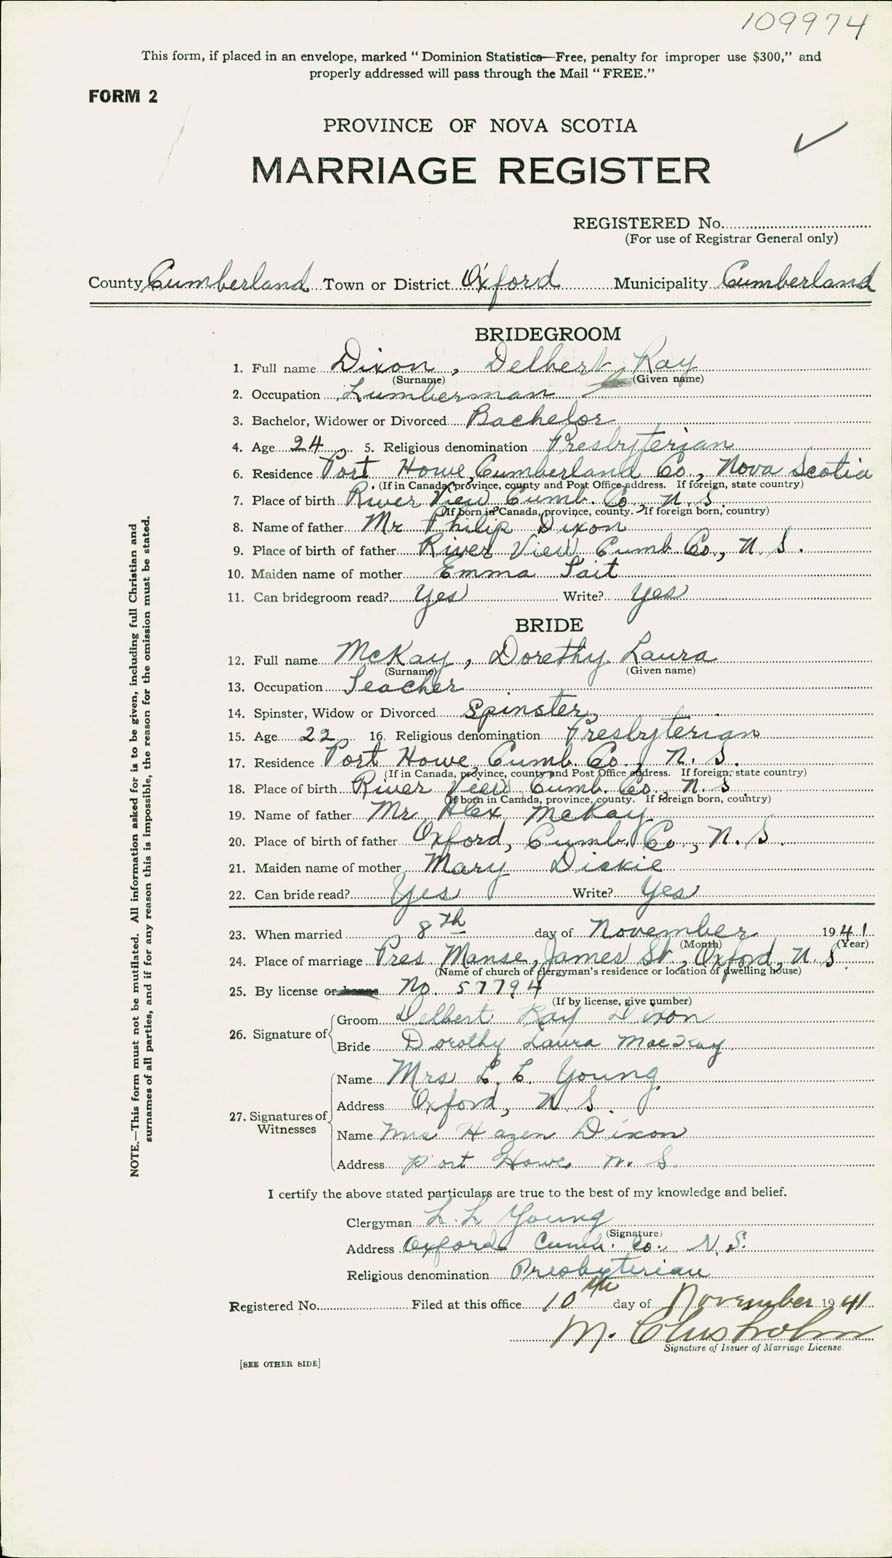 109974
This form, if placed in an envelope, marked "Dominion Statistics—Free, penalty for improper use $300," and
properly addressed will pass through the Mail "FREE."
FORM 2
PROVINCE OF NOVA SCOTIA
MARRIAGE REGISTER
REGISTERED No.
(For use of Registrar General only)
County Cumberland Town or District Oxford Municipality Cumberland
BRIDEGROOM
1. Full name Dixon, Delbert Ray
(Surname) (Given name)
2. Occupation Lumberman
3. Bachelor, Widower or Divorced Bachelor
4. Age 24 5. Religious denomination Presbyterian
6. Residence Port Howe, Cumberland Co., Nova Scotia
(If in Canada, province, county and Post Office address. If foreign, state country)
7. Place of birth River View Cumb. Co., N. S.
(If born in Canada, province, county. If foreign born, country)
8. Name of father Mr Philip Dixon
9. Place of birth of father River View Cumb. Co., N. S.
10. Maiden name of mother Emma Tait
11. Can bridegroom read? Yes Write? Yes
BRIDE
12. Full name McKay, Dorethy Laura
(Surname) (Given name)
13. Occupation Teacher
14. Spinster, Widow or Divorced Spinster
15. Age 22 16. Religious denomination Presbyterian
17. Residence Port Howe Cumb. Co., N. S.
(If in Canada, province, county and Post Office address. If foreign, state country)
18. Place of birth River View Cumb. Co., N. S.
(If born in Canada, province, county. If foreign born, country)
19. Name of father Mr. Alex McKay
20. Place of birth of father Oxford, Cumb. Co., N. S.
21. Maiden name of mother Mary Dickie
22. Can bride read? Yes Write? Yes
23. When married 8th day of November 1941
(Month) (Year)
24. Place of marriage Pres Manse, James St., Oxford, N. S.
(Name of church of clergyman's residence or location of dwelling house)
25. By license or banns No. 57794
(If by license, give number)
26. Signature of
Groom Delbert Ray Dixon
Bride Dorothy Laura MacKay
27. Signatures of Witnesses
Name Mrs L. L. Young
Address Oxford, N. S.
Name Mrs Hazen Dixon
Address Port Howe N. S.
I certify the above stated particulars are true to the best of my knowledge and belief.
Clergyman L. L Young
(Signature)
Address Oxford Cumb. Co., N. S.
Religious denomination Presbyterian
Registered No. Filed at this office 10th day of November 1941
M. Chisholm
Signature of Issuer of Marriage License.
[SEE OTHER SIDE]
NOTE.—This form must not be mutilated. All information asked for is to be given, including full Christian and
surnames of all parties, and if for any reason this is impossible, the reason for the omission must be stated.